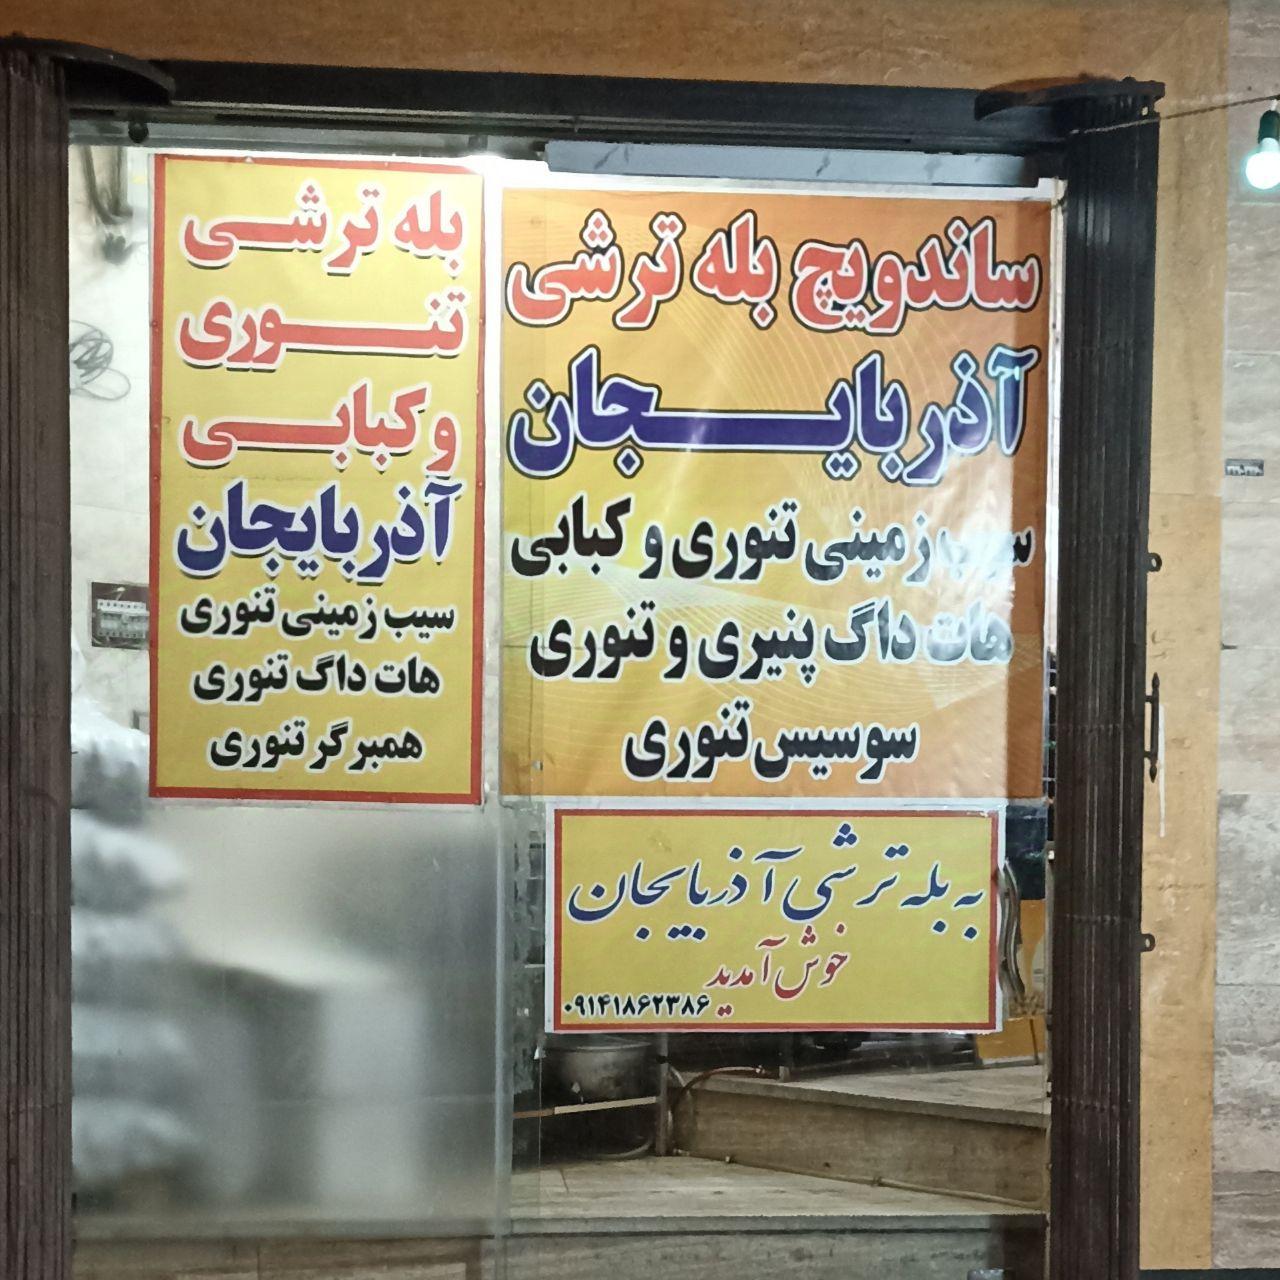 ساندویچ بله ترشی
آذربایجان
سیب زمینی تنوری و کبابی
هات داگ پنیری و تنوری
سوسیس تنوری
بله ترشی
تنوری
و کبابی
آذربایجان
سیب زمینی تنوری
هات داگ تنوری
همبرگر تنوری
به بله ترشی آذربایجان
خوش آمدید
۰۹۱۴۱۸۶۲۳۸۶